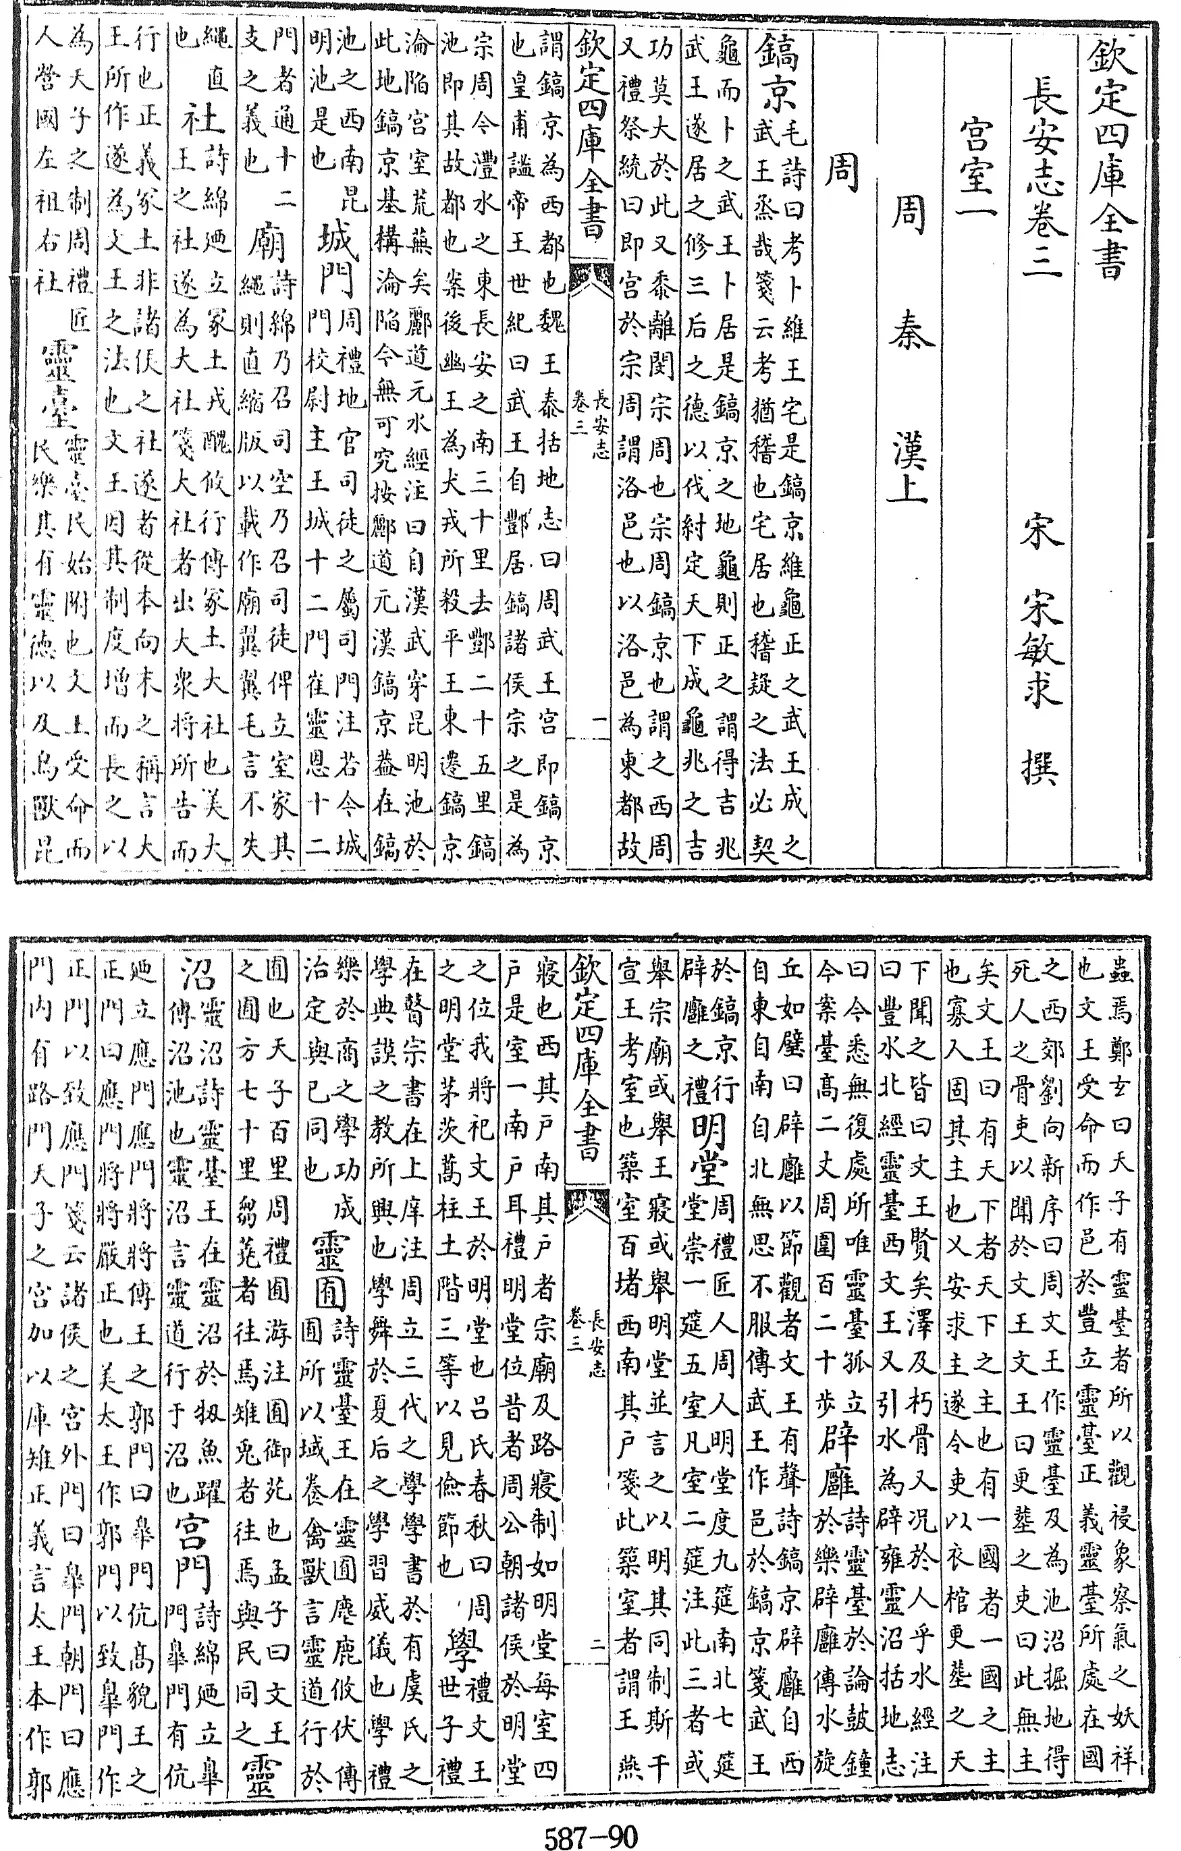 欽定四庫全書
長安志卷三 宋 宋敏求 撰
宫室一
周 秦 漢上
周
鎬京
毛詩曰考卜維王宅是鎬京維龜正之武王成之
武王烝哉箋云考猶稽也宅居也稽疑之法必契
龜而卜之武王卜居是鎬京之地龜則正之謂得吉兆
武王遂居之修三后之德以伐紂定天下成龜兆之吉
功莫大於此又黍離閔宗周也宗周鎬京也謂之西周
又禮祭統曰即宫於宗周謂洛邑也以洛邑為東都故
欽定四庫全書
長安志
卷三
一
謂鎬京為西都也魏王泰括地志曰周武王宫即鎬京
也皇甫謐帝王世紀曰武王自酆居鎬諸侯宗之是為
宗周今灃水之東長安之南三十里去酆二十五里鎬
池即其故都也案後幽王為犬戎所殺平王東遷鎬京
淪陷宫室荒蕪矣酈道元水經注曰自漢武穿昆明池於
此地鎬京基構淪陷今無可究按酈道元漢鎬京葢在鎬
池之西南昆
明池是也
城門
周禮地官司徒之屬司門注若今城
門校尉主王城十二門崔靈恩十二
門者通十二
支之義也
廟
詩綿乃召司空乃召司徒俾立室家其
繩則直縮版以載作廟翼翼毛言不失
繩直
也
社
詩綿廼立冢土戎醜攸行傳冢土大社也美大
王之社遂為大社箋大社者出大衆將所告而
行也正義冢土非諸侯之社遂者從本向末之稱言大
王所作遂為文王之法也文王因其制度增而長之以
為天子之制周禮匠
人營國左祖右社
靈臺
靈臺民始附也文王受命而
民樂其有靈德以及鳥獸昆
蟲焉鄭玄曰天子有靈臺者所以觀祲象察氣之妖祥
也文王受命而作邑於豐立靈臺正義靈臺所處在國
之西郊劉向新序曰周文王作靈臺及為池沼掘地得
死人之骨吏以聞於文王文王曰更塟之吏曰此無主
矣文王曰有天下者天下之主也有一國者一國之主
也寡人固其主也又安求主遂令吏以衣棺更塟之天
下聞之皆曰文王賢矣澤及朽骨又况於人乎水經注
曰豐水北經靈臺西文王又引水為辟雍靈沼括地志
曰今悉無復處所唯靈臺孤立
今案臺高二丈周圍百二十步
辟廱
詩靈臺於論鼓鐘
於樂辟廱傳水旋
丘如璧曰辟廱以節觀者文王有聲詩鎬京辟廱自西
自東自南自北無思不服傳武王作邑於鎬京箋武王
於鎬京行
辟廱之禮
明堂
周禮匠人周人明堂度九筵南北七筵
堂崇一筵五室凡室二筵注此三者或
舉宗廟或舉王寢或舉明堂並言之以明其同制斯干
宣王考室也築室百堵西南其户箋此築室者謂王燕
欽定四庫全書
長安志
卷三
二
寢也西其户南其户者宗廟及路寢制如明堂每室四
户是室一南户耳禮明堂位昔者周公朝諸侯於明堂
之位我將祀文王於明堂也吕氏春秋曰周
之明堂茅茨蒿柱土階三等以見儉節也
學
禮文王
世子禮
在瞽宗書在上庠注周立三代之學學書於有虞氏之
學典謨之教所興也學舞於夏后之學習威儀也學禮
樂於商之學功成
治定與已同也
靈囿
詩靈臺王在靈囿麀鹿攸伏傳
囿所以域養禽獸言靈道行於
囿也天子百里周禮囿游注囿御苑也孟子曰文王
之囿方七十里芻蕘者往焉雉兎者往焉與民同之
靈沼
靈沼詩靈臺王在靈沼於牣魚躍
傳沼池也靈沼言靈道行于沼也
宫門
詩綿廼立臯
門臯門有伉
廼立應門應門將將傳王之郭門曰臯門伉髙貌王之
正門曰應門將將嚴正也美太王作郭門以致臯門作
正門以致應門箋云諸侯之宫外門曰臯門朝門曰應
門内有路門天子之宫加以庫雉正義言太王本作郭
587-90